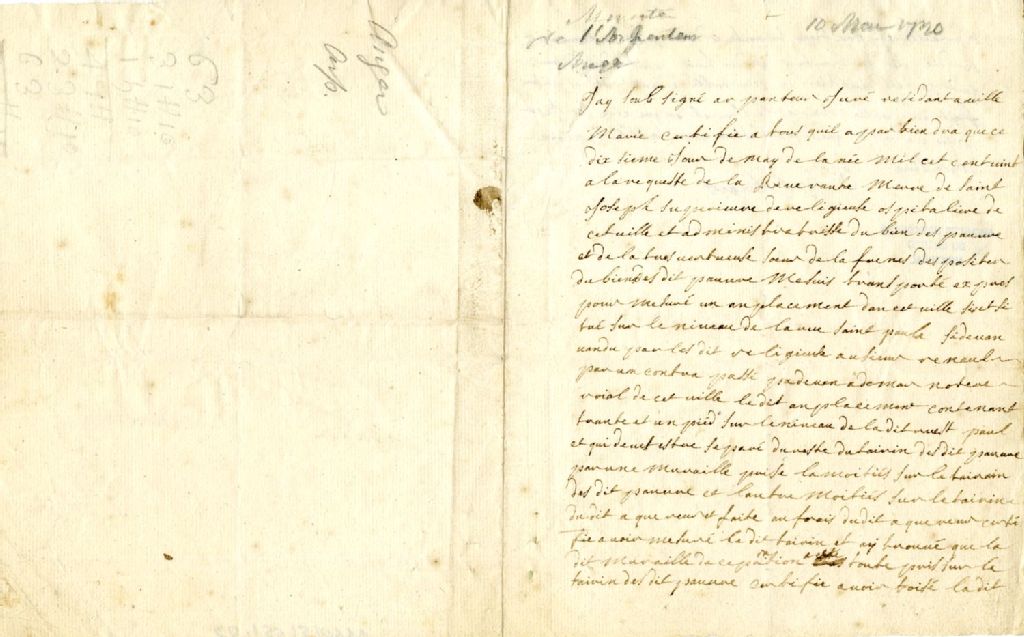 Angar
Arp.
63
10 May 1720
Jay soub signé arpanteur Juré residant a ville
Marie certifie a tous quil apar biendra que ce
dix sieme Jour de may de lanée Mil cet cent vint
a la requeste de la Reverante Merre de saint
Joseph superieure de religieuse ospitaliere de
cet ville et administratrisse du bien des pauvre
et de la tres vertueuse sœur de la
du bien des dit pauvre Me suis transporté expres
pour mesuré un anplacement dan cet ville
sur le niveau de la rue saint paul sideven
vandu par les dit religieuse au sieur renaul
par un contra passé pardevan ademar notere
roial de cet ville le dit anplacement contenant
trante et un pied sur le niveau de la dit rue st paul
et qui devet estre separé du reste du tairin des dit pauvre
par une muraille prise la moities sur le tairin
des dit pauvre et lautre moities sur le tairin
du dit aquereur et faite au frais du dit aquereur certi
fie avoir mesuré le dit tairin et ay trouvé que la
dit muraille de separation toute pris sur le
tairin des dit pauvre certifie avoir toisé la dit